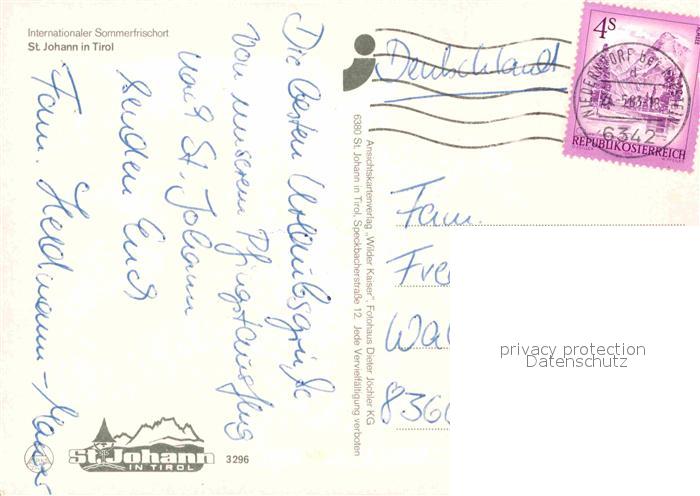 Internationaler Sommerfrischort
St. Johann in Tirol
Die besten Urlaubsgrüße
von unserem Pfingstausflug
nach St. Johann
senden Euch
Fam. Heldmann - Mauser
St. Johann
IN TIROL
3296
Ansichtskartenverlag „Wilder Kaiser", Fotohaus Dieter Jöchler KG
6380 St. Johann in Tirol, Speckbacherstraße 12. Jede Vervielfältigung verboten
Deutschland
4S
NIEDERNDORF BEI
6342
REPUBLIK ÖSTERREICH
Fam.
Fre
Wal
8360
privacy protection
Datenschutz